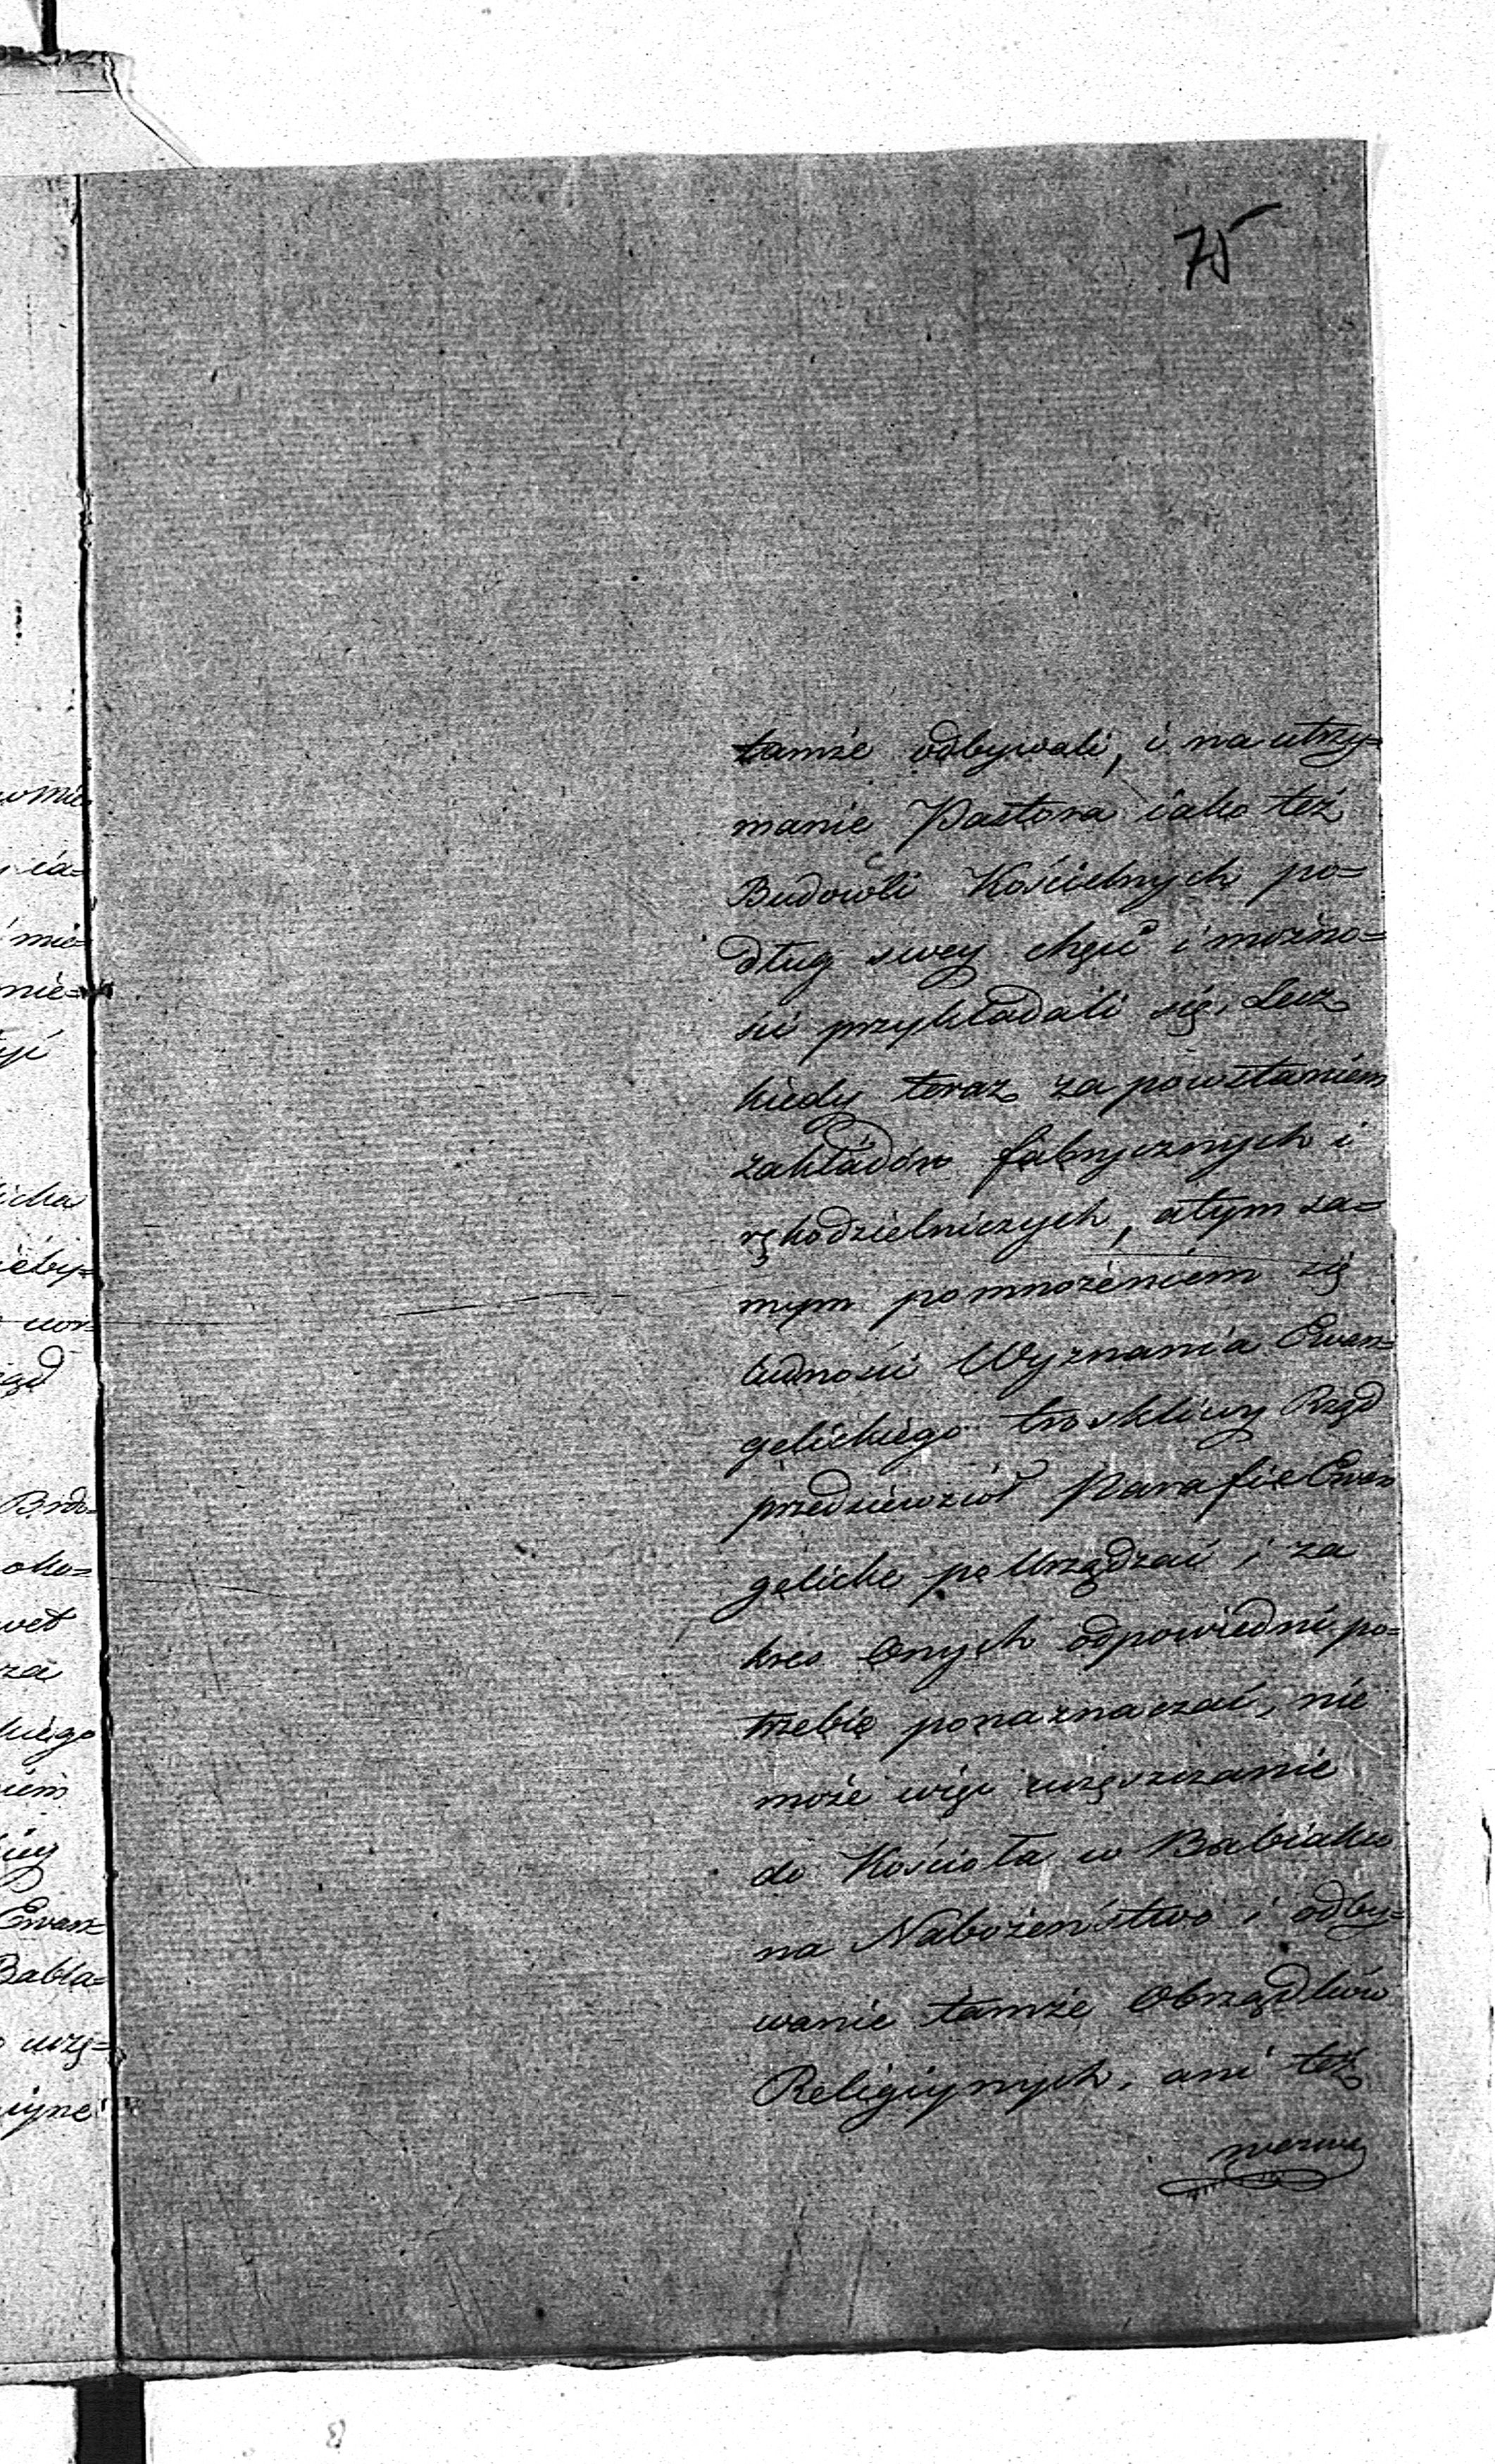 75
tamże odbywali, i na utrzy=
manie Pastora iako też
Budowli Kościelnych po=
dług swey chęci i możno=
ści przykładali się, Lecz
kiedy teraz za powstaniem
zakładów fabrycznych i
rękodzielniczych, atym sa=
mym pomnożeniem się
ludności Wyznania Ewan=
gelickiego troskliwy Rząd
przedsiewziół Parafie Ewan
gelickie po Urządzać i za
kres Onych odpowiedni po=
trzebie ponaznaczać, nie
może więc uczęszczanie
do Kościoła w Babiaku
na Nabożeństwo i odby=
wanie tamże Obrządków
Religiynych, ani też
womie
ia=
mie=
nie=
icka
ieby=
uor=
Brdo=
oko=
wet
za
kiego
iem
Ewan=
Babia=
uczę=
iyne